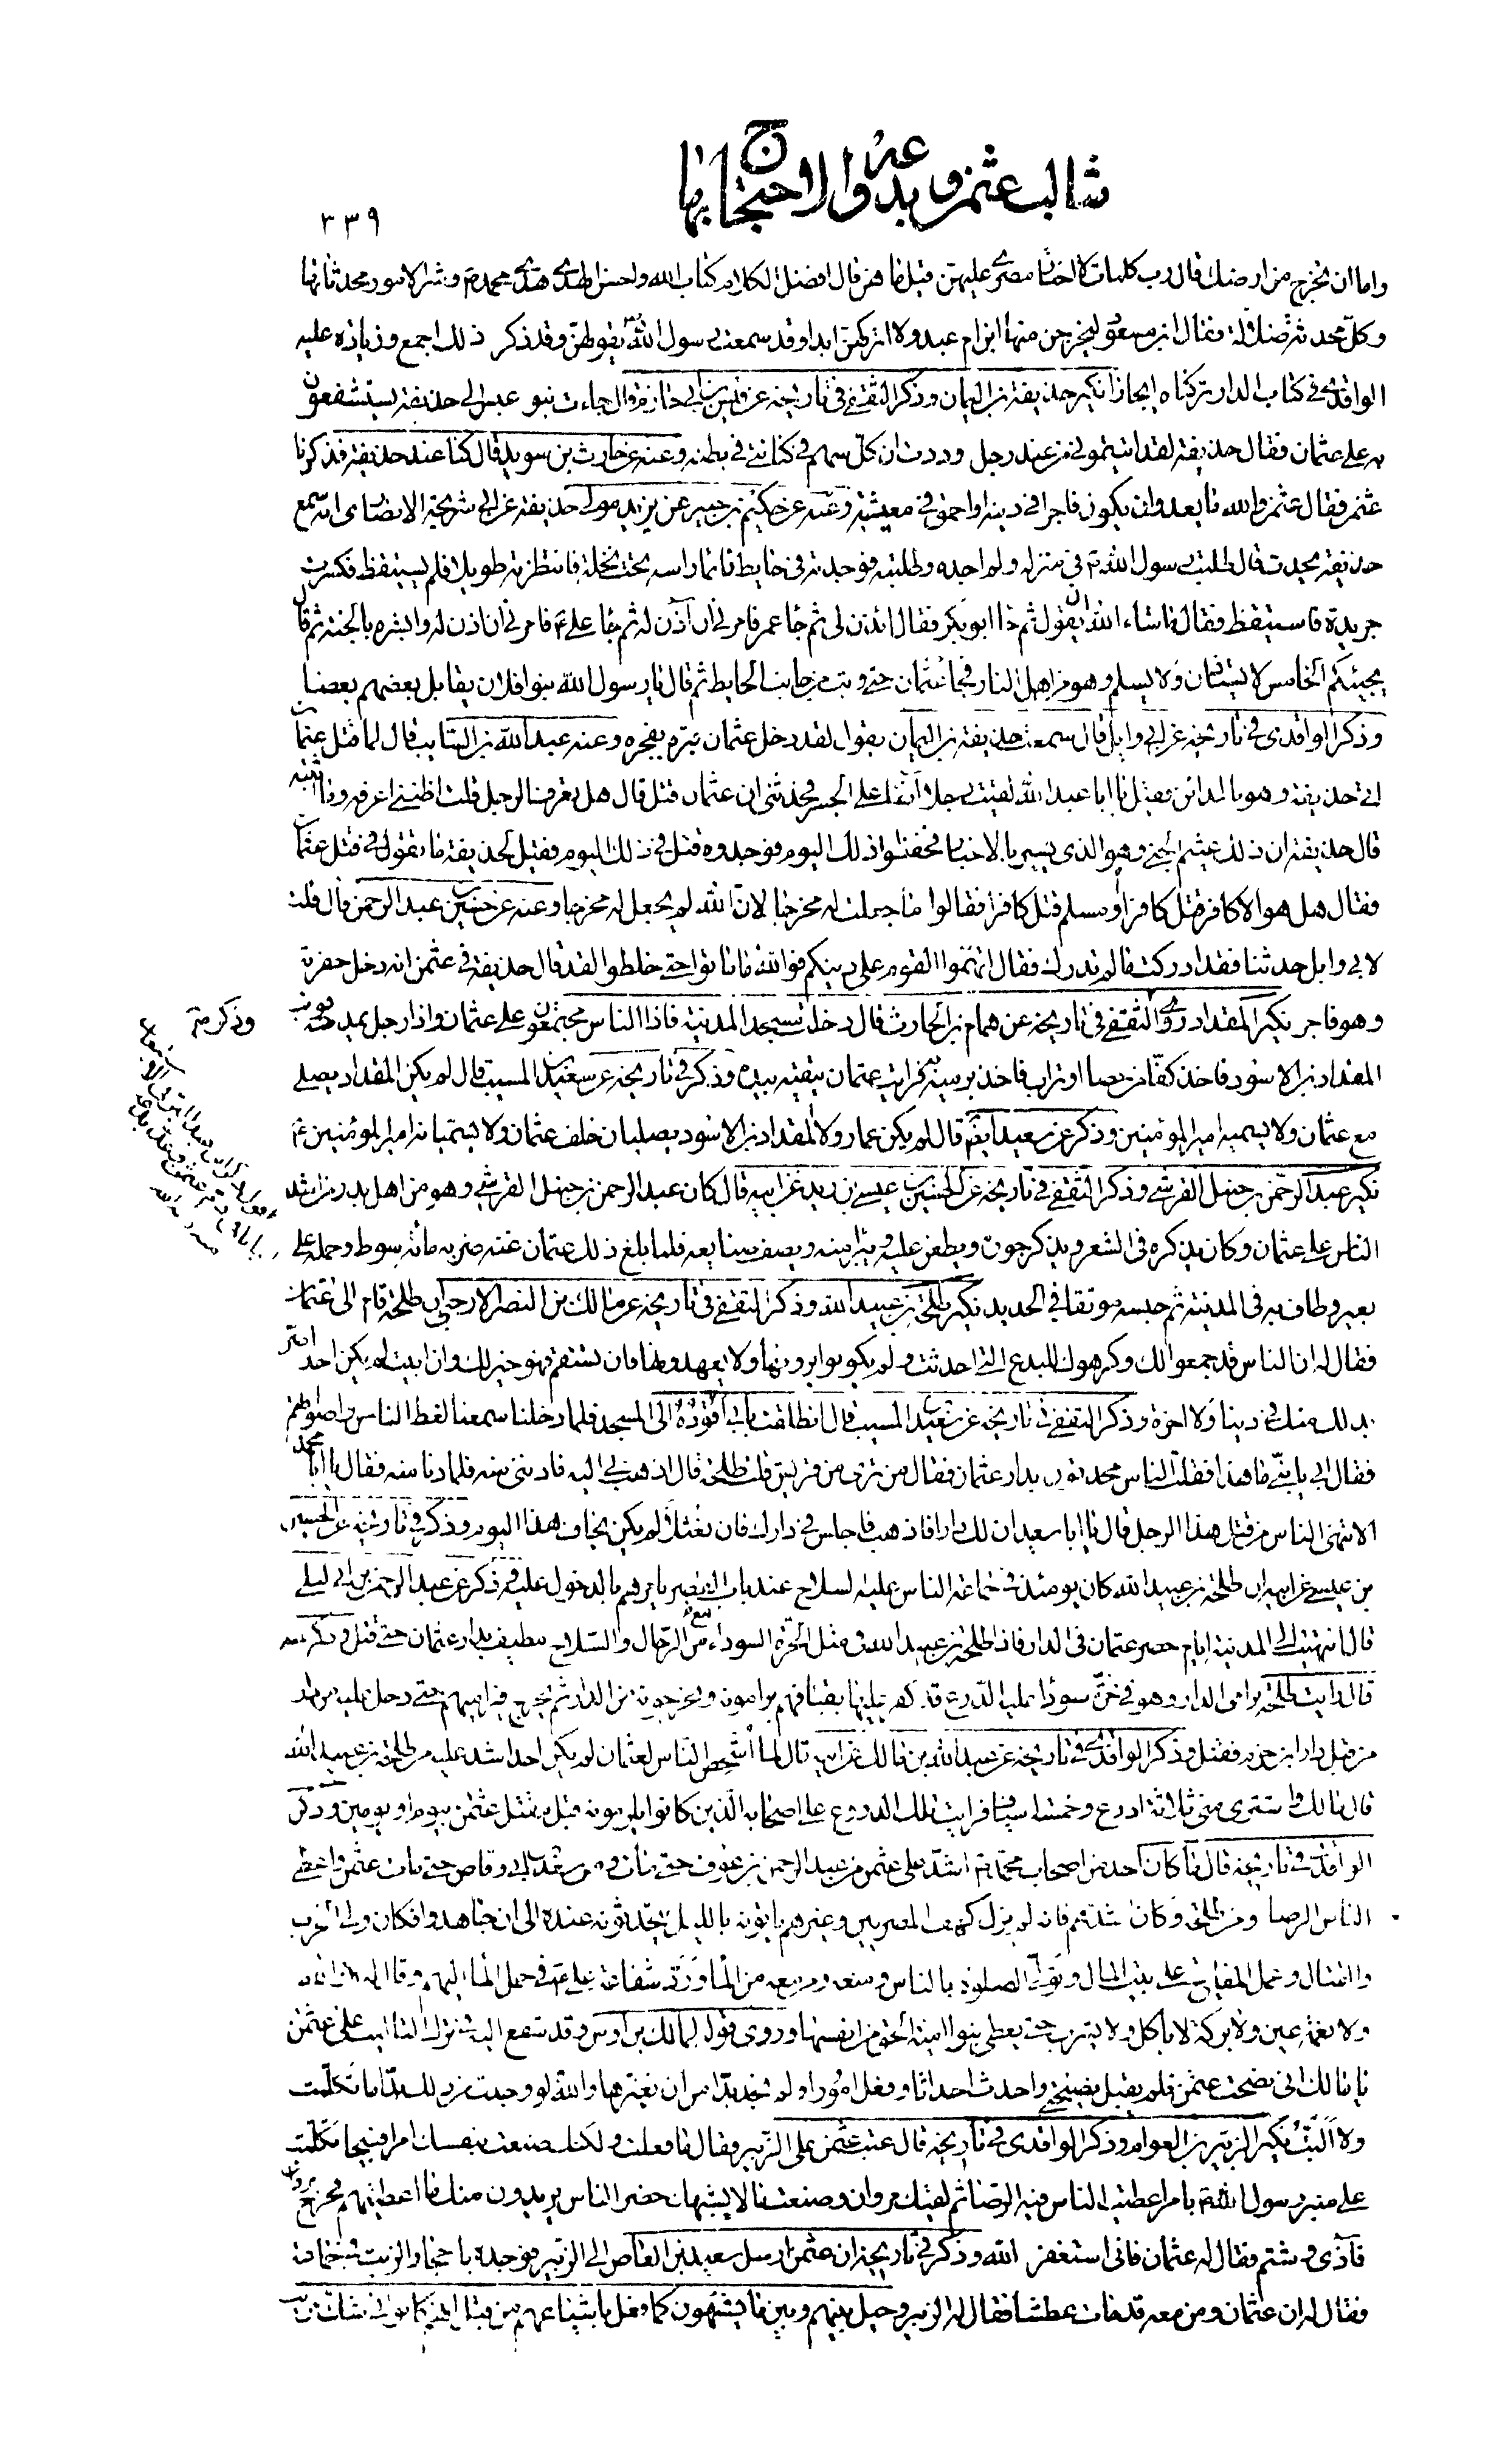 مثالب عثمن وبدعه والاحتجاج بها
٣٣٩
واما ان تخرج من ارضك قال رب كلمات لا اختار مصرى عليهن قيل ما هن قال افضل الكلام كتاب الله واحسن الهدى هدى محمد ص وشر الامور محدثاتها
وكل محدثة ضلالة فقال ابن مسعود ليخرجن منها ابن ام عبد ولا اتركهن ابدا وقد سمعت رسول الله يقولهن وقد ذكر ذلك اجمع وزيادة عليه
الواقدى فى كتاب الدار تركناه ايجازا نكير حذيفة بن اليمان وذكر الثقفي فى تاريخه عن قيس بن ابي حازم قال جاءت بنو عبس الى حذيفة يستشفعون
به على عثمان فقال حذيفة لقد اتيتمونى من عند رجل وددت ان كل سهم فى كنانتي فى بطنه وعنه عن حارث بن سويد قال كنا عند حذيفة فذكرنا
عثمن فقال عثمن والله ما يعدو ان يكون فاجرا في دينه او احمق في معيشته وعنه عن حكيم بن جبير عن يزيد مولى حذيفة عن ابي شريحة الانصارى انه سمع
حذيفة يحدث قال طلبت رسول الله ص في منزله ولم اجده وطلبته فوجدته فى حايط نائما راسه تحت نخلة فانتظرته طويلا فلم يستيقظ فكسرت
جريدة فاستيقظ فقال ما شاء الله ان يقول ثم جا ابو بكر فقال ائذن لى ثم جا عمر فامرنى ان آذن له ثم جا على ع فامرنى ان اذن له وابشره بالجنة ثم قال
يجيئكم الخامس لا يستاذن ولا يسلم وهو من اهل النار فجا عثمان حتى وثب من جانب الحايط ثم قال يا رسول الله بنو فلان يقابل بعضهم بعضا
وذكر الواقدى فى تاريخه عن ابي وايل قال سمعت حذيفة بن اليمان يقول لقد دخل عثمان قبره بفجره وعنه عبد الله بن السايب قال لما قتل عثمان
اتى حذيفة وهو بالمدائن فقيل يا ابا عبد الله لقيت رجلا آنفا على الجسر فحدثنى ان عثمان قتل قال هل تعرف الرجل قلت اظننى اعرفه وما اثبته
قال حذيفة ان ذلك عثيم الجنى وهو الذى يسير بالاخبار فحفظوا ذلك اليوم فوجدوه قتل في ذلك اليوم فقيل لحذيفة ما تقول فى قتل عثمان
فقال هل هو الا كافر قتل كافرا او مسلم قتل كافرا فقالوا ما جعلت له مخرجا قال ان الله لم يجعل له مخرجا وعنه عن حصين بن عبد الرحمن قال قلت
لابى وايل حدثنا فقد ادركت ما لم ندرك فقال اتهموا القوم على دينكم فوالله ما ماتوا حتى خلطوا لقد قال حذيفة فى عثمن انه دخل حفرته
وهو فاجر نكير المقداد روى الثقفى في تاريخه عن همام بن الحارث قال دخلت مسجد المدينة فاذا الناس مجتمعون على عثمان واذا رجل يمدحه فوثب
المقداد بن الاسود فاخذ كفا من حصا او تراب فاخذ يرميه به فرايت عثمان يتقيه بيده وذكر فى تاريخه عن سعيد بن المسيب قال لم يكن المقداد يصلى
مع عثمان ولا يسميه امير المومنين وذكر عن سعيد ايضا قال لم يكن عمار ولا المقداد بن الاسود يصليان خلف عثمان ولا يسميانه امير المومنين
نكير عبد الرحمن بن حنبل القرشى وذكر الثقفي فى تاريخه عن الحسين بن عيسى بن زيد عن ابيه قال كان عبد الرحمن بن حنبل القرشى وهو من اهل بدر من اشد
الناس على عثمان وكان يذكره فى الشعر ويذكر جوره ويطعن عليه ويبرا منه ويصف صنايعه فلما بلغ ذلك عثمان عنه ضربه مائة سوط وحمله على
بعير وطاف به فى المدينة ثم حبسه موثقا في الحديد نكير طلحة بن عبيد الله وذكر الثقفي فى تاريخه عن مالك بن النصر الارحبى ان طلحة قام الى عثمان
فقال له ان الناس قد جمعوا لك وكرهوك للبدع التى احدثت ولم يكونوا يرونها ولا يعهدونها فان تستقم فهو خير لك وان ابيت لم يكن احد اضر
بذلك منك فى دنيا ولا اخرة وذكر الثقفى فى تاريخه عن سعيد بن المسيب قال انطلقت بابي اقوده الى المسجد فلما دخلنا سمعنا لغط الناس واصواتهم
فقال ابى يا بنى ما هذا فقلت الناس محدقون بدار عثمان فقال من ترى من قريش قلت طلحة قال اذهب بى اليه فادننى منه فلما دنا منه فقال يا ابا محمد
الا تنهى الناس من قتل هذا الرجل قال يا ابا سعيد ان لك دارا فاذهب فاجلس فى دارك فان نعثلا لم يكن يخاف هذا اليوم وذكر فى تاريخه عن الحسين
بن عيسى عن ابيه ان طلحة بن عبيد الله كان يومئذ فى جماعة الناس عليه السلاح عند باب القصر يامرهم بالدخول عليه وذكر عن عبد الرحمن بن ابى ليلى
قال انتهيت الى المدينة ايام حصر عثمان فى الدار فاذا طلحة بن عبيد الله فى مثل الحرة السوداء من الرجال والسلاح مطيف بدار عثمان حتى قتل وذكر عنه
قال رايت طلحة يرامى الدار وهو فى خزة سودا عليه الدرع قد كفر عليها بقباء فهم يرامونه ويخرجونه من الدار ثم يخرج فيراميهم حتى دخل عليه من دار
من قبل دار ابن حزم فقتل وذكر الواقدى فى تاريخه عن عبد الله بن مالك عن ابيه قال لما اشخص الناس لعثمان لم يكن احد اشد عليه من طلحة بن عبيد الله
قال مالك واشترى منى ثلاثة ادرع وخمسة اسياف فرايت تلك الدروع على اصحابه الذين كانوا يلزمونه قبل مقتل عثمن بيوم او يومين وذكر
الواقدى فى تاريخه قال ما كان احد من اصحاب محمد ص اشد على عثمن من عبد الرحمن بن عوف حتى مات ومن سعد بن ابى وقاص حتى مات عثمن واعطى
الناس الرضا ومن طلحة وكان اشدهم فانه لم يزل كهف المصريين وغيرهم ياتونه بالليل يتحدثون عنده الى ان جاهدوا فكان ولى الحرب
والقتال وعمل المفاتيح على بيت المال وتولى الصلوة بالناس ومنعه ومن معه من الما ورد شفاعة على ع فى حمل الما اليهم وقال له لا والله
ولا نعمة عين ولا بركة لا ياكل ولا يشرب حتى يعطى بنوا امية الحق من انفسها وروى قوله لمالك بن اوس وقد شفع اليه فى ترك التاليب على عثمن
يا مالك انى نصحت عثمن فلم يقبل نصيحتى واحدث احداثا وفعل امورا ولم نجد بدا من ان نغيرها والله لو وجدت من ذلك بدا ما تكلمت
ولا البت نكير الزبير بن العوام وذكر الواقدى فى تاريخه قال عتب عثمن على الزبير فقال ما فعلت ولكنك صنعت بنفسك امرا قبيحا تكلمت
على منبر رسول الله ص بامر اعطيت الناس فيه الرضا ثم لقيك مروان وصنعت ما لا يشبهك حضر الناس يريدون منك ما اعطيتهم فخرج مروان
فآذى وشتم فقال له عثمان فانى استغفر الله وذكر فى تاريخه ان عثمن ارسل سعيد بن العاص الى الزبير فوجده باحجار الزيت فى جماعة
فقال له ان عثمان ومن معه قد مات عطشا فقال له الزبير وحيل بينهم وبين ما يشتهون كما فعل باشياعهم من قبل انهم كانوا فى شك مريب